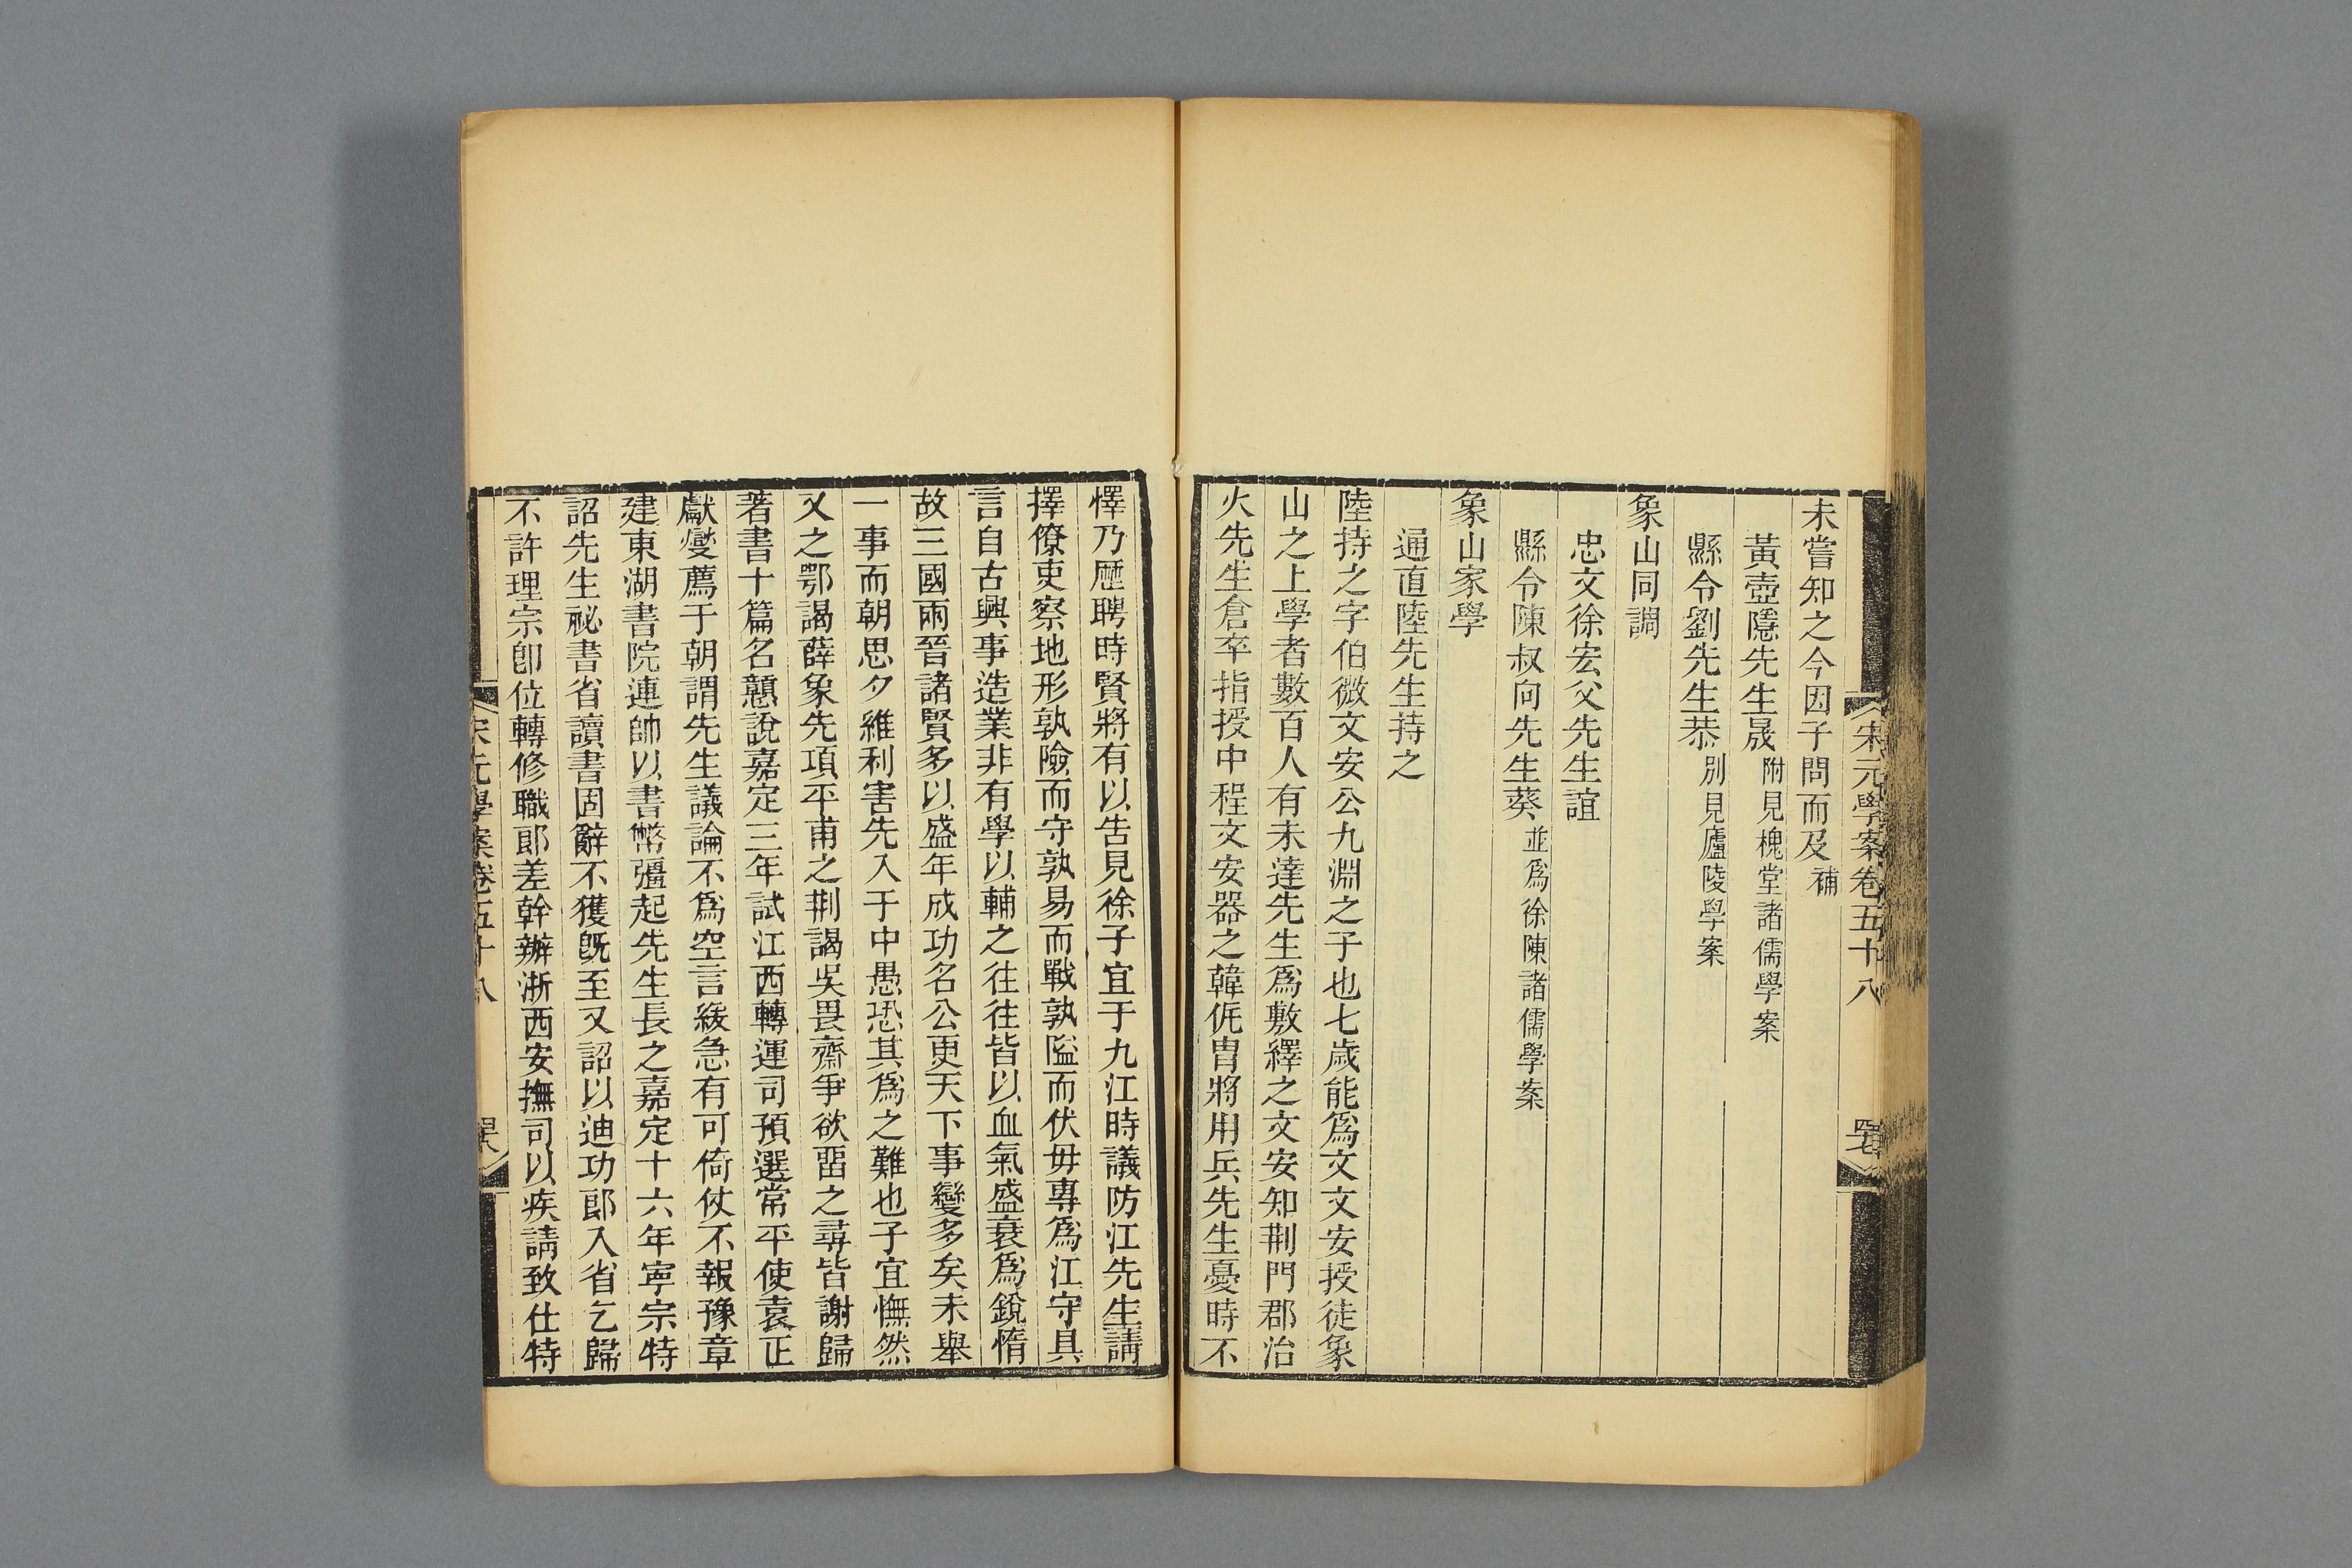 宋元學案卷五十八
未嘗知之今因子問而及補
黃壺隱先生晟附見槐堂諸儒學案
縣令劉先生恭別見廬陵學案
象山同調
忠文徐宏父先生誼
縣令陳叔向先生葵並爲徐陳諸儒學案
象山家學
通直陸先生持之
陸持之字伯微文安公九淵之子也七歲能爲文文安授徒象
山之上學者數百人有未達先生爲敷繹之文安知荆門郡治
火先生倉卒指授中程文安器之韓侂胄將用兵先生憂時不
懌乃歷聘時賢將有以告見徐子宜于九江時議防江先生請
擇僚吏察地形孰險而守孰易而戰孰隘而伏毋專爲江守具
言自古興事造業非有學以輔之往往皆以血氣盛衰爲銳惰
故三國兩晉諸賢多以盛年成功名公更天下事變多矣未舉
一事而朝思夕維利害先入于中愚恐其爲之難也子宜憮然
又之鄂謁薛象先項平甫之荆謁吳畏齋爭欲畱之尋皆謝歸
著書十篇名戇說嘉定三年試江西轉運司預選常平使袁正
獻燮薦于朝謂先生議論不爲空言緩急有可倚仗不報豫章
建東湖書院連帥以書幣彊起先生長之嘉定十六年寧宗特
詔先生祕書省讀書固辭不獲旣至又詔以迪功郞入省乞歸
不許理宗卽位轉修職郞差幹辦浙西安撫司以疾請致仕特
宋元學案卷五十八